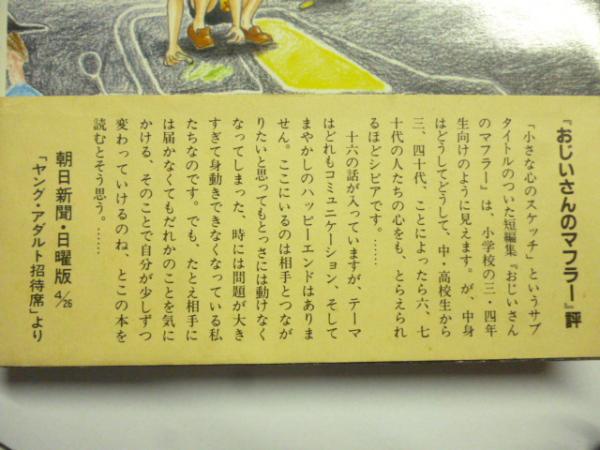 『おじいさんのマフラー』評
「小さな心のスケッチ」というサブ
タイトルのついた短編集『おじいさん
のマフラー』は、小学校の三・四年
生向けのように見えます。が、中身
はどうしてどうして、中・高校生から
三、四十代、ことによったら六、七
十代の人たちの心をも、とらえられ
るほどシビアです。……
十六の話が入っていますが、テーマ
はどれもコミュニケーション、そして
まやかしのハッピーエンドはありま
せん。ここにいるのは相手とつなが
りたいと思ってもとっさには動けなく
なってしまった、時には問題が大き
すぎて身動きできなくなっている私
たちなのです。でも、たとえ相手に
は届かなくてもだれかのことを気に
かける、そのことで自分が少しずつ
変わっていけるのね、とこの本を
読むとそう思う。……
朝日新聞・日曜版4/26
「ヤング・アダルト招待席」より